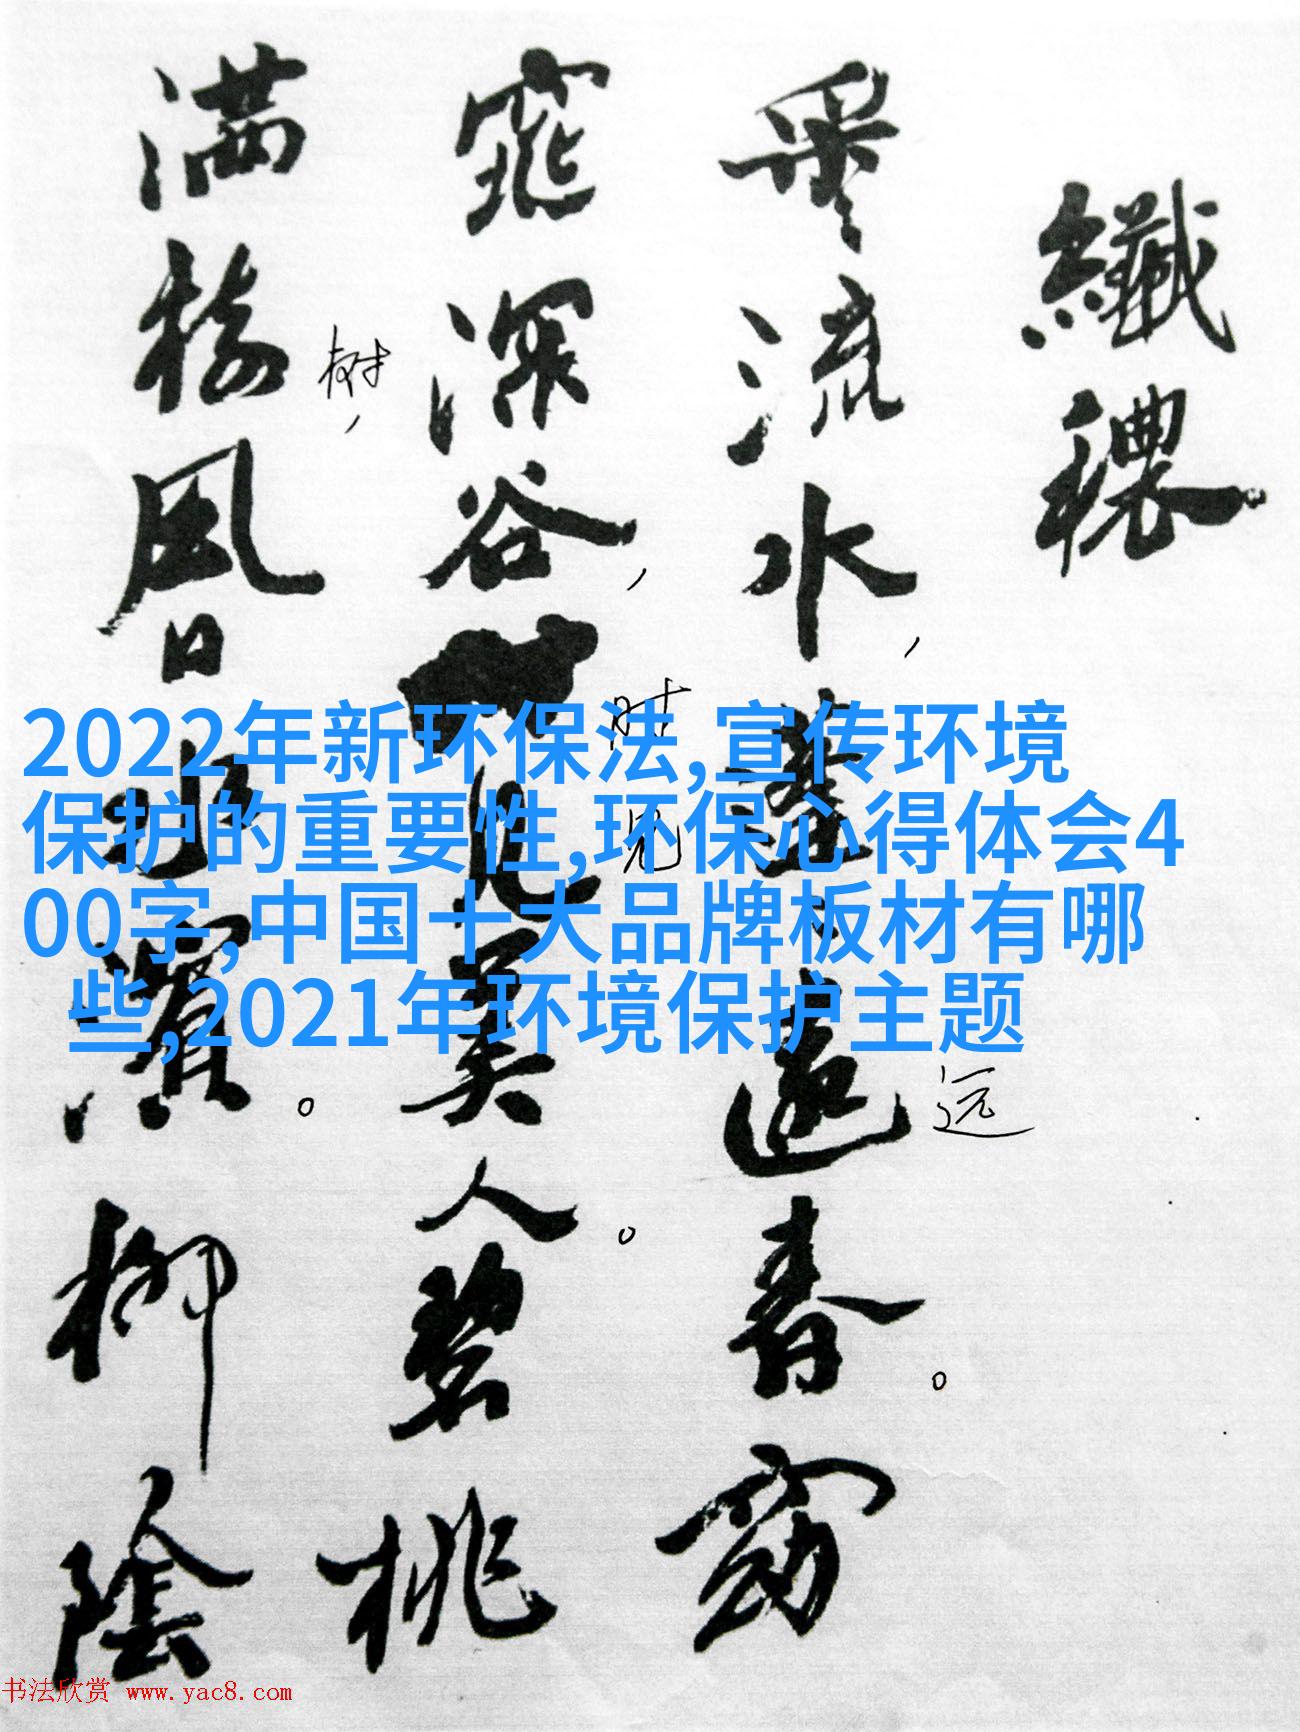 纖穠
采流水，蓬蓬遠春。窈
远
窕深谷，
时见美人。碧桃
满树风日水濱。柳陰
树，
2022年新环保法,宣传环境
保护的重要性,环保心得体会4
00字,中国十大品牌板材有哪
些,2021年环境保护主题
书法欣赏 www.yac8.com